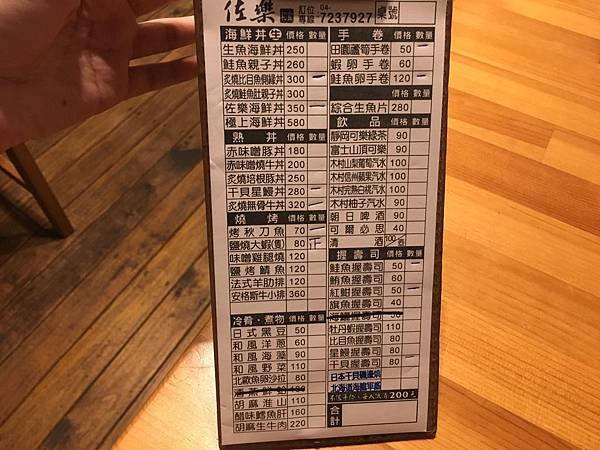 佐樂 訂位專線 04-7237927 桌號
海鮮丼生 價格 數量
生魚海鮮丼 250
鮭魚親子丼 260
炙燒比目魚側緣丼 300 一
炙燒鮭魚肚親子丼 300
佐樂海鮮丼 350 一
極上海鮮丼 580
熟丼 價格 數量
赤味噌豚丼 180
赤味噌燒牛丼 200
炙燒培根豚丼 250
干貝星鰻丼 280 一
炙燒無骨牛丼 320 一
燒烤 價格 數量
烤秋刀魚 70 一
鹽燒大蝦(隻) 80 正
味噌雞腿燒 120
鹽烤鯖魚 120
法式羊肋排 120
安格斯牛小排 360
冷肴·煮物 價格 數量
日式黑豆 50
和風洋蔥 60
和風海藻 90
和風野菜 110
北歐魚卵沙拉 80
胡麻淮山 110
醋味鱈魚肝 160
胡麻生牛肉 220
手卷 價格 數量
田園蘆筍手卷 50 一
蝦卵手卷 60
鮭魚卵手卷 120 一
價格 數量
綜合生魚片 280
飲品 價格 數量
靜岡可樂綠茶 90
富士山頂可樂 90
木村山梨葡萄汽水 100
木村信州蘋果汽水 100
木村完熟白桃汽水 100
木村柚子汽水 90
朝日啤酒 90
可爾必思 40
清酒 100/壺
握壽司 價格 數量
鮭魚握壽司 50 一
鮪魚握壽司 60
紅魽握壽司 50 一
旗魚握壽司 40
海鱺握壽司 50
牡丹蝦握壽司 110
比目魚握壽司 80
星鰻握壽司 80
干貝握壽司 80 一
日本干貝磯邊燒
北海道海膽軍艦
200元
合計